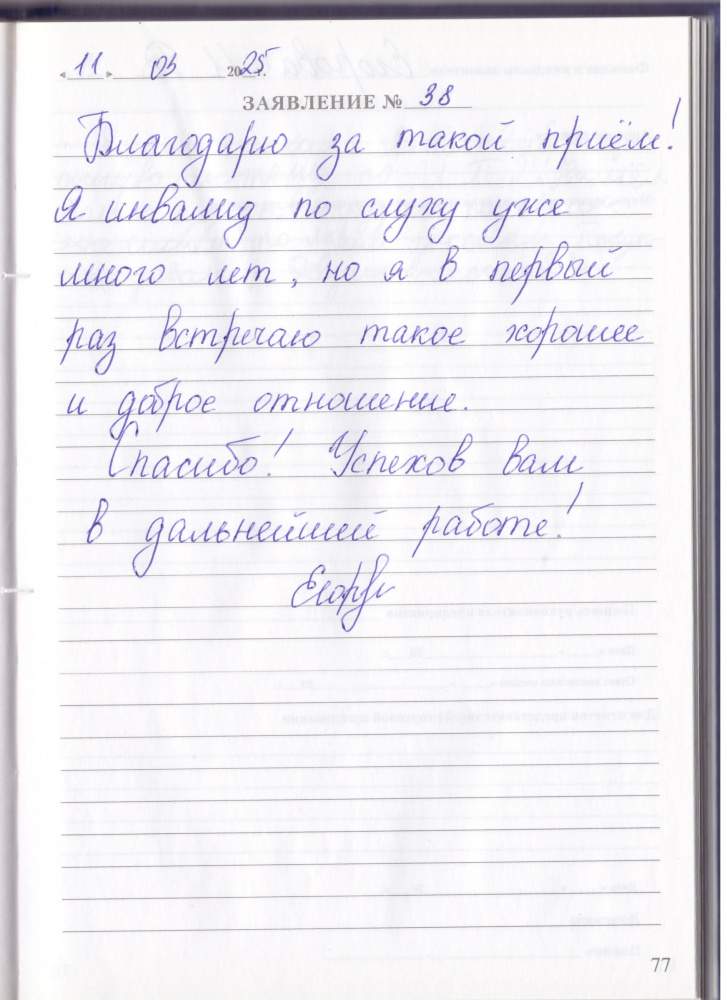 «11» 03 2025 г.
ЗАЯВЛЕНИЕ № 38
Благодарю за такой приём!
Я инвалид по слуху уже
много лет, но я в первый
раз встречаю такое хорошее
и доброе отношение.
Спасибо! Успехов вам
в дальнейшей работе!
77